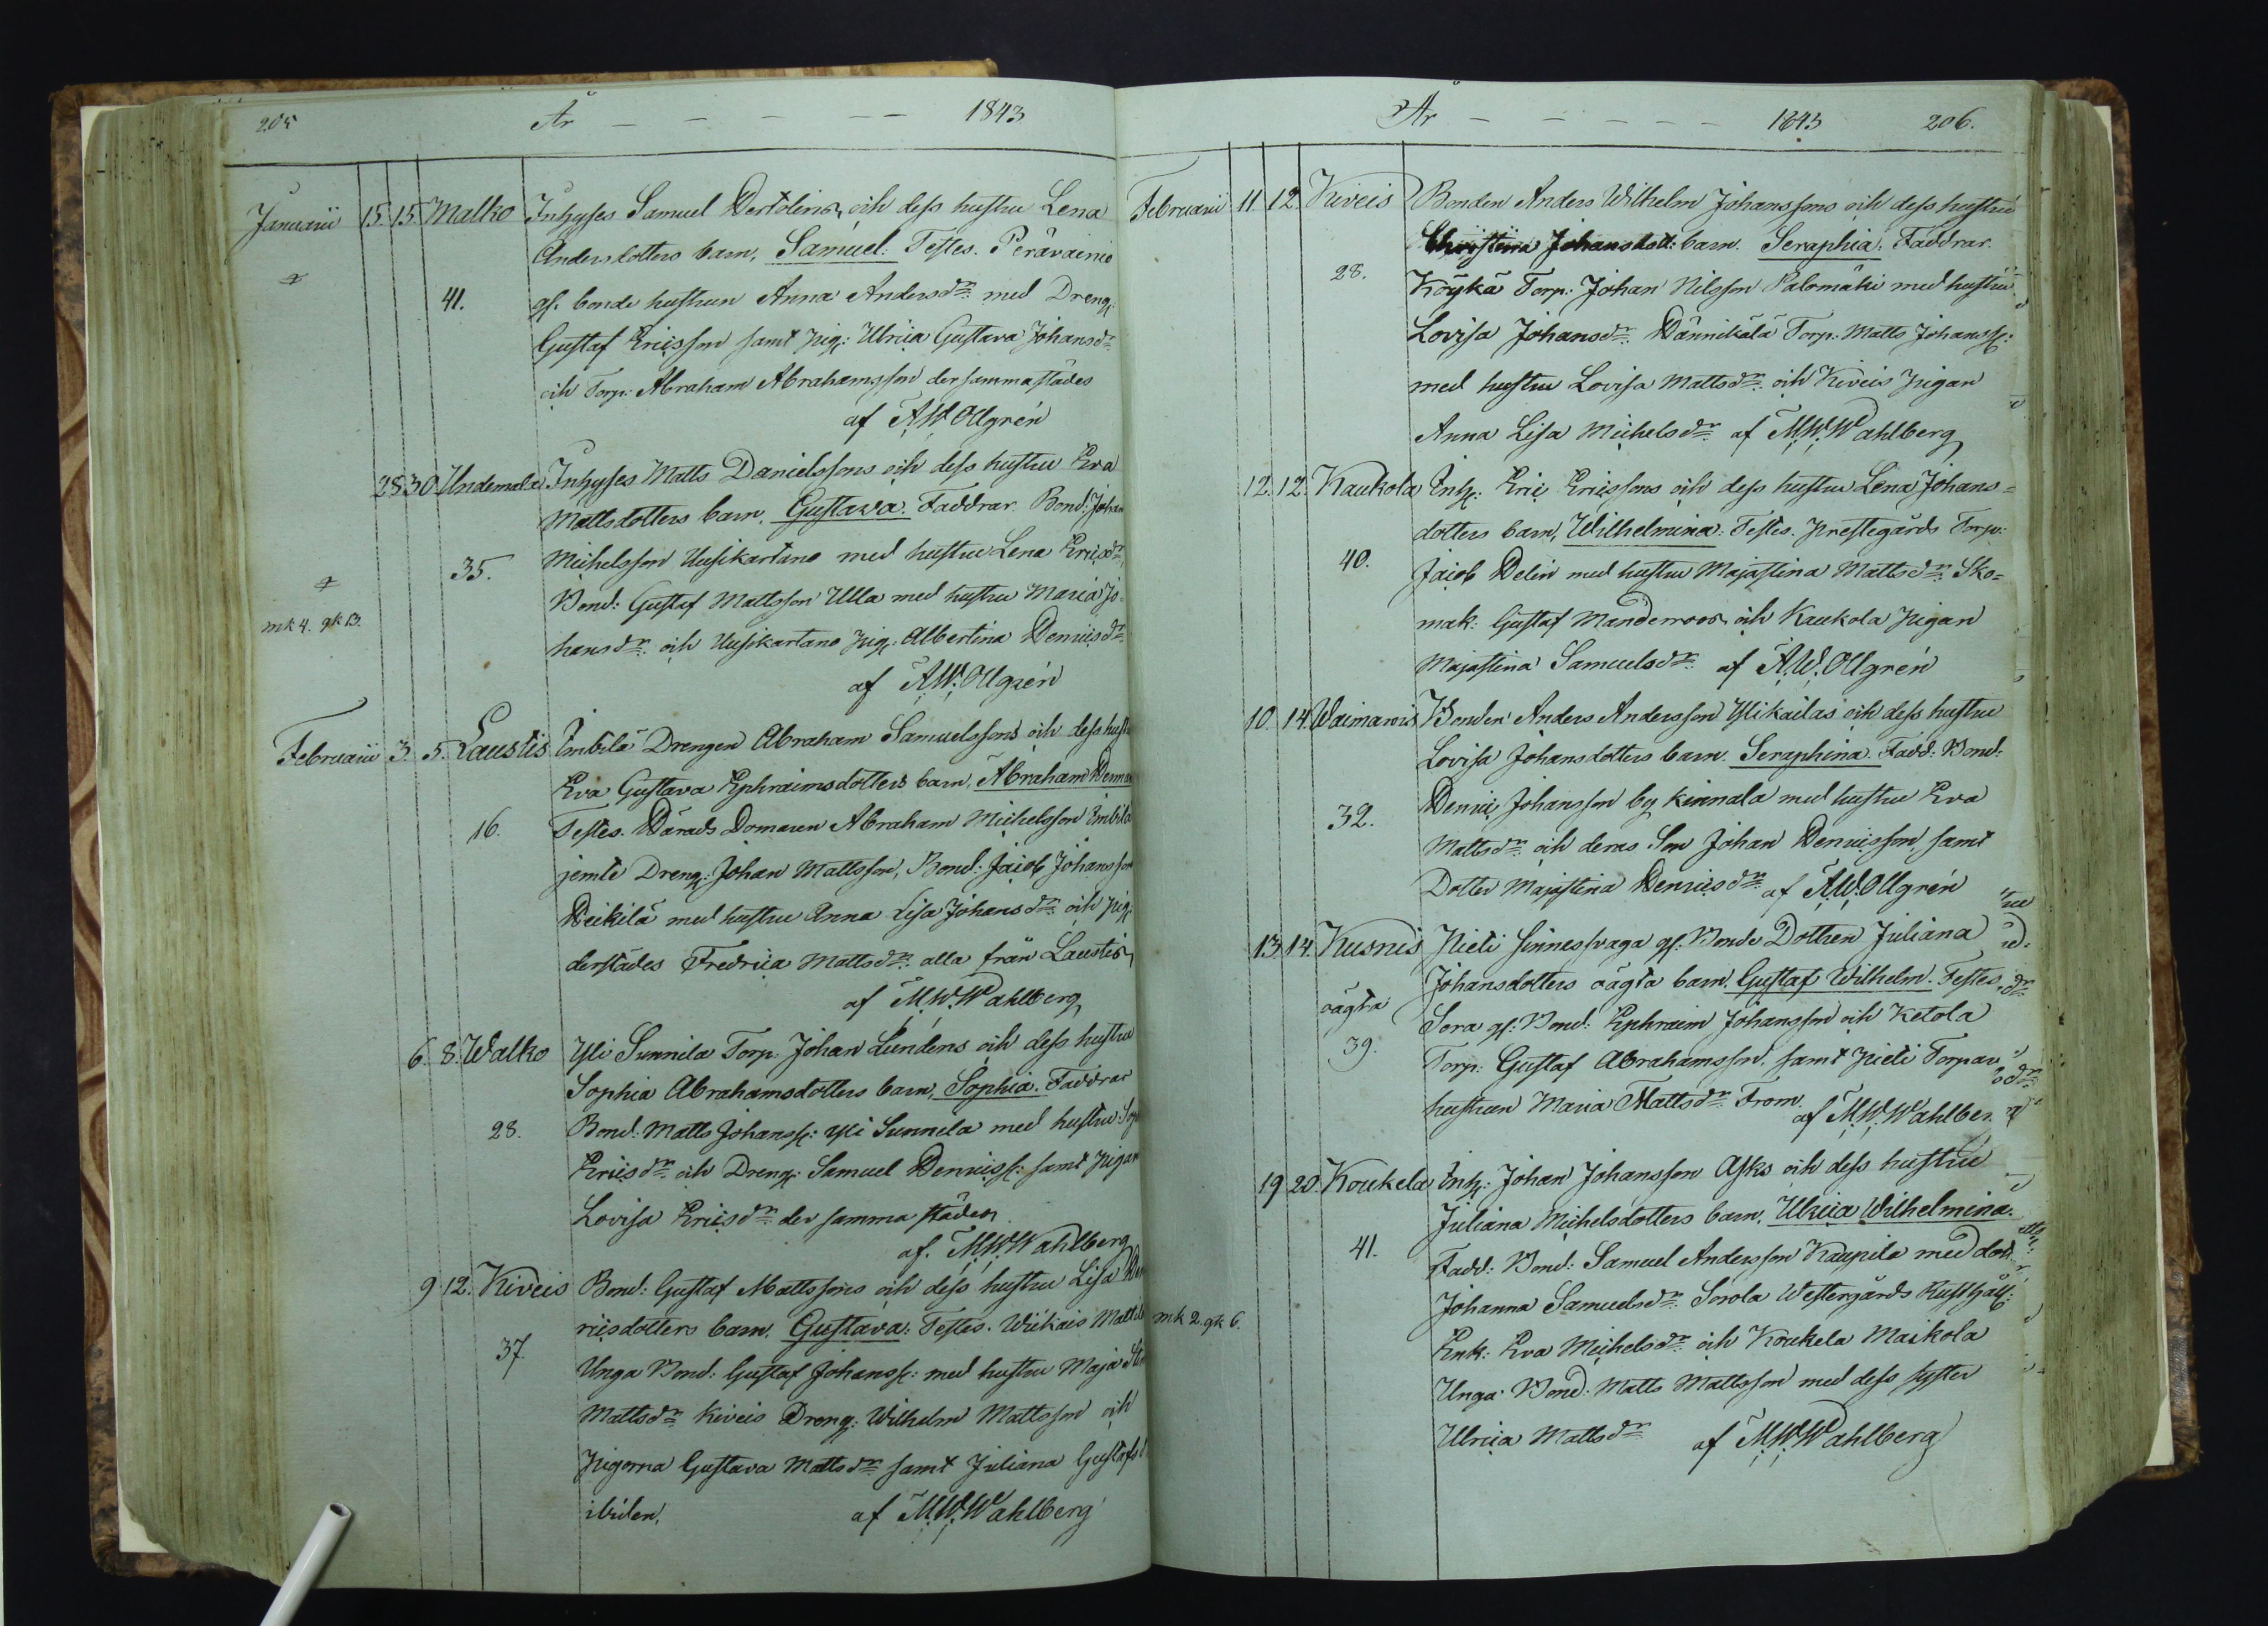 205 År 1843
Januarii 15. 15. Malko Inhyses Samuel Bertolins och dess hustru Lena
Andersdotters barn, Samuel. Testes. Perävainio
41. gl. bonde hustrun Anna Andersdr: med Dreng:
Gustaf Ericsson samt pig: Ulrica Gustava Johansdr
och Torp: Abraham Abrahamsson dersammastädes
af A.W. Ollgrén
28 30 Undemala Inhyses Matts Danielssons och dess hustru Eva
Mattsdotters barn, Gustava. Faddrar. Bond: Johan
35. Michelsson Uusikartano med hustru Lena Ericsdr
Bond: Gustaf Mattsson Ulla med hustru Maria Jo-
mk 4. qk 13.
hansdr. och Uusikartano pig: Albertina Henricsdr
af A.W. Ollgrén
Februarii 3. 5. Laustis Imbilä Drengen Abraham Samuelssons och dess hust
Eva Gustava Ephraimsdotters barn, Abraham Herman
16. Testes. Härads Domaren Abraham Michelsson Imbilä
jemte Dreng: Johan Mattsson, Bond: Jacob Johansson
Heikilä med hustru Anna Lisa Johansdr: och pig:
derstädes Fredrica Mattsdr: alla från Laustis
af M.W. Wahlberg
6. 8. Walko Yli Sunnila Torp: Johan Lundens och dess hustru
Sophia Abrahamsdotters barn, Sophia. Faddrar
28. Bond: Matts Johanss: Yli Sunnila med hustru
Ericsdr: och Dreng: Samuel Henricss: samt pigan
Lovisa Ericsdr der samma städes
af. M.W. Wahlberg
9 12. Kiveis Bond: Gustaf Mattssons och dess hustru Lisa Hen
ricsdotters barn. Gustava: Testes. Wiikais Mattila
37. Unga Bond: Gustaf Johanss: med hustru Maja
Mattsdr Kiveis Dreng: Wilhelm Mattsson och
pigorna Gustava Mattsdr samt Juliana Gustafsd
ibidem, af M.W. Wahlberg
År 1843 206.
Februarii 11. 12. Kiveis Bonden Anders Wilhelm Johanssons och dess hustru
Christina Johansdott: barn. Seraphia. Faddrar.
28. Köykä Torp: Johan Nilsson Palomäki med hustru
Lovisa Johansdr: Männikälä Torp: Matts Johanss:
med hustru Lovisa Mattsdr: och Kiveis pigan
Anna Lisa Michelsdr: af M.W. Wahlberg
12. 12. Kaukola Inh: Eric Ericssons och dess hustru Lena Johans=
dotters barn, Wilhelmina. Testes. Prestegårds Torp:
40. Jacob Helin med hustru Majastina Mattsdr: Sko=
mak: Gustaf Manderroos och Kaukola pigan
Majastina Samuelsdr: af A.W. Ollgrén
10. 14. Waimarois Bonden Anders Andersson Ylikailas och dess hustru
Lovisa Johansdotters barn. Seraphina. Fadd: Bond:
32. Henric Johansson by kinnala med hustru Eva
Mattsdr: och deras Son Johan Henricsson samt
Dotter Majastina Henricsdr af A.W. Ollgrén
13. 14. Kusnis Pieti sinnessvaga gl. Bonde Dottren Juliana
oägta Johansdotters oägta barn. Gustaf Wilhelm. Testes.
39. Sora gl: Bond: Ephraim Johansson och Ketola
Torp: Gustaf Abrahamsson, samt Pieti Torpar
hustrun Maria Mattsdr From. af M.W. Wahlber
19 20. Koukela Inh: Johan Johansson Asks och dess hustru
Juliana Michelsdotters barn, Ulrica Wilhelmina.
41. Fadd: Bond: Samuel Andersson Kaupila med dott
Johanna Samuelsdr: Sorola Westergårds Rusthåll:
mk 2. qk 6.
Enk: Eva Michelsdr och Koukela Maikola
Unga Bond: Matts Mattsson med dess syster
Ulrica Mattsdr af M.W. Wahlberg